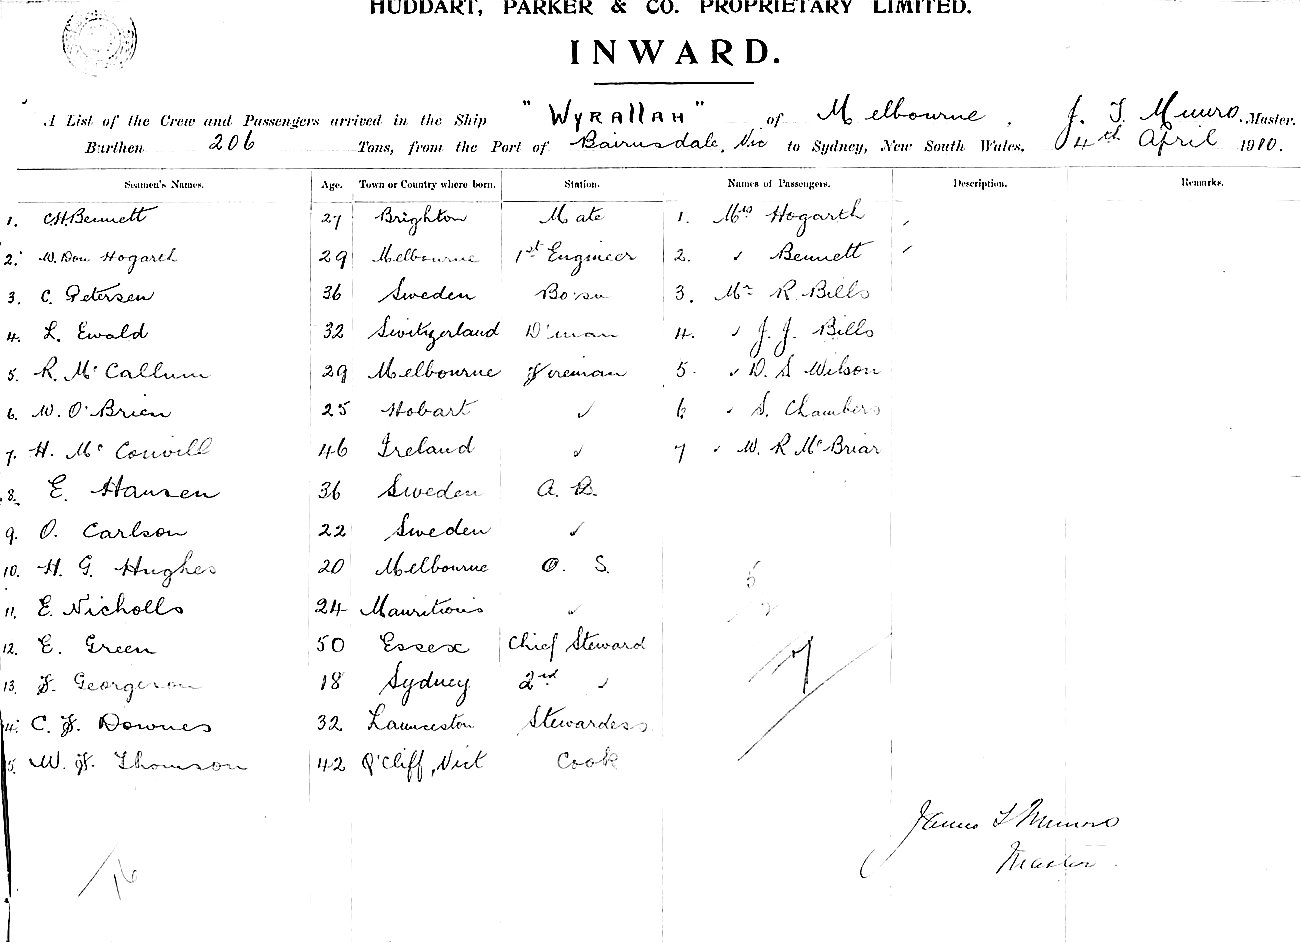 HUDDART, PARKER & CO. PROPRIETARY LIMITED.
INWARD.
A List of the Crew and Passengers arrived in the Ship "WYRALLAH" of Melbourne, J. T. Munro, Master.
Burthen 206 Tons, from the Port of Bairnsdale, Vic to Sydney, New South Wales, 4th April 1910.
Seamen's Names. Age. Town or Country where born. Station. Names of Passengers. Description. Remarks.
1. C.H. Bennett 27 Brighton Mate 1. Mrs Hogarth
2. W. Don Hogarth 29 Melbourne 1st Engineer 2. " Bennett
3. C. Petersen 36 Sweden Bosn 3. Mr R. Bills
4. L. Ewald 32 Switzerland D'man 4. " J. J. Bills
5. R. McCallum 29 Melbourne Fireman 5. " D. S Wilson
6. W. O'Brien 25 Hobart " 6 " S. Chambers
7. H. McConvill 46 Ireland " 7 " W. R McBriar
8. E. Hansen 36 Sweden A. B.
9. O. Carlson 22 Sweden "
10. H. G. Hughes 20 Melbourne O. S.
11. E. Nicholls 24 Mauritious "
12. E. Green 50 Essex Chief Steward
13. F. Georgeson 18 Sydney 2nd "
14. C. F. Downes 32 Launceston Stewardess
15. W. F. Thomson 42 Q'Cliff, Vict Cook
5
2
7
James T Munro
Master
16